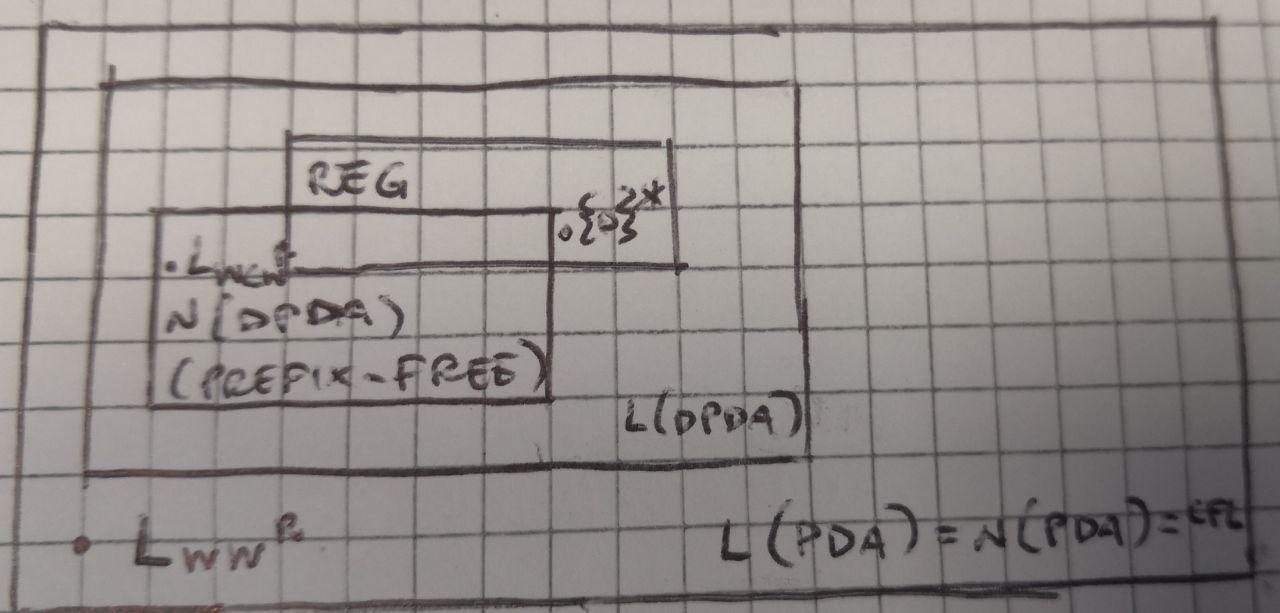 REG
.{0}*
.Lwcwᴿ
N(DPDA)
(PREFIX-FREE)
L(DPDA)
• Lwwᴿ
L(PDA) = N(PDA) = CFL